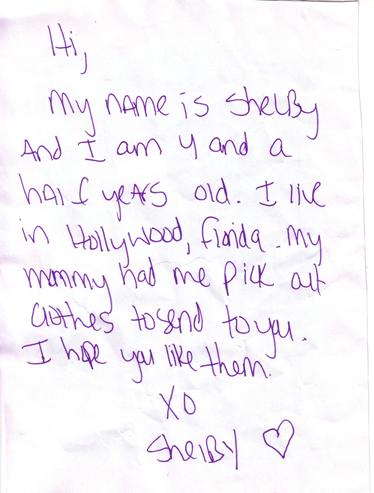 Hi,
My name is Shelby
And I am 4 and a
half years old. I live
in Hollywood, Florida. My
mommy had me pick out
clothes to send to you.
I hope you like them.
XO
Shelby ♡